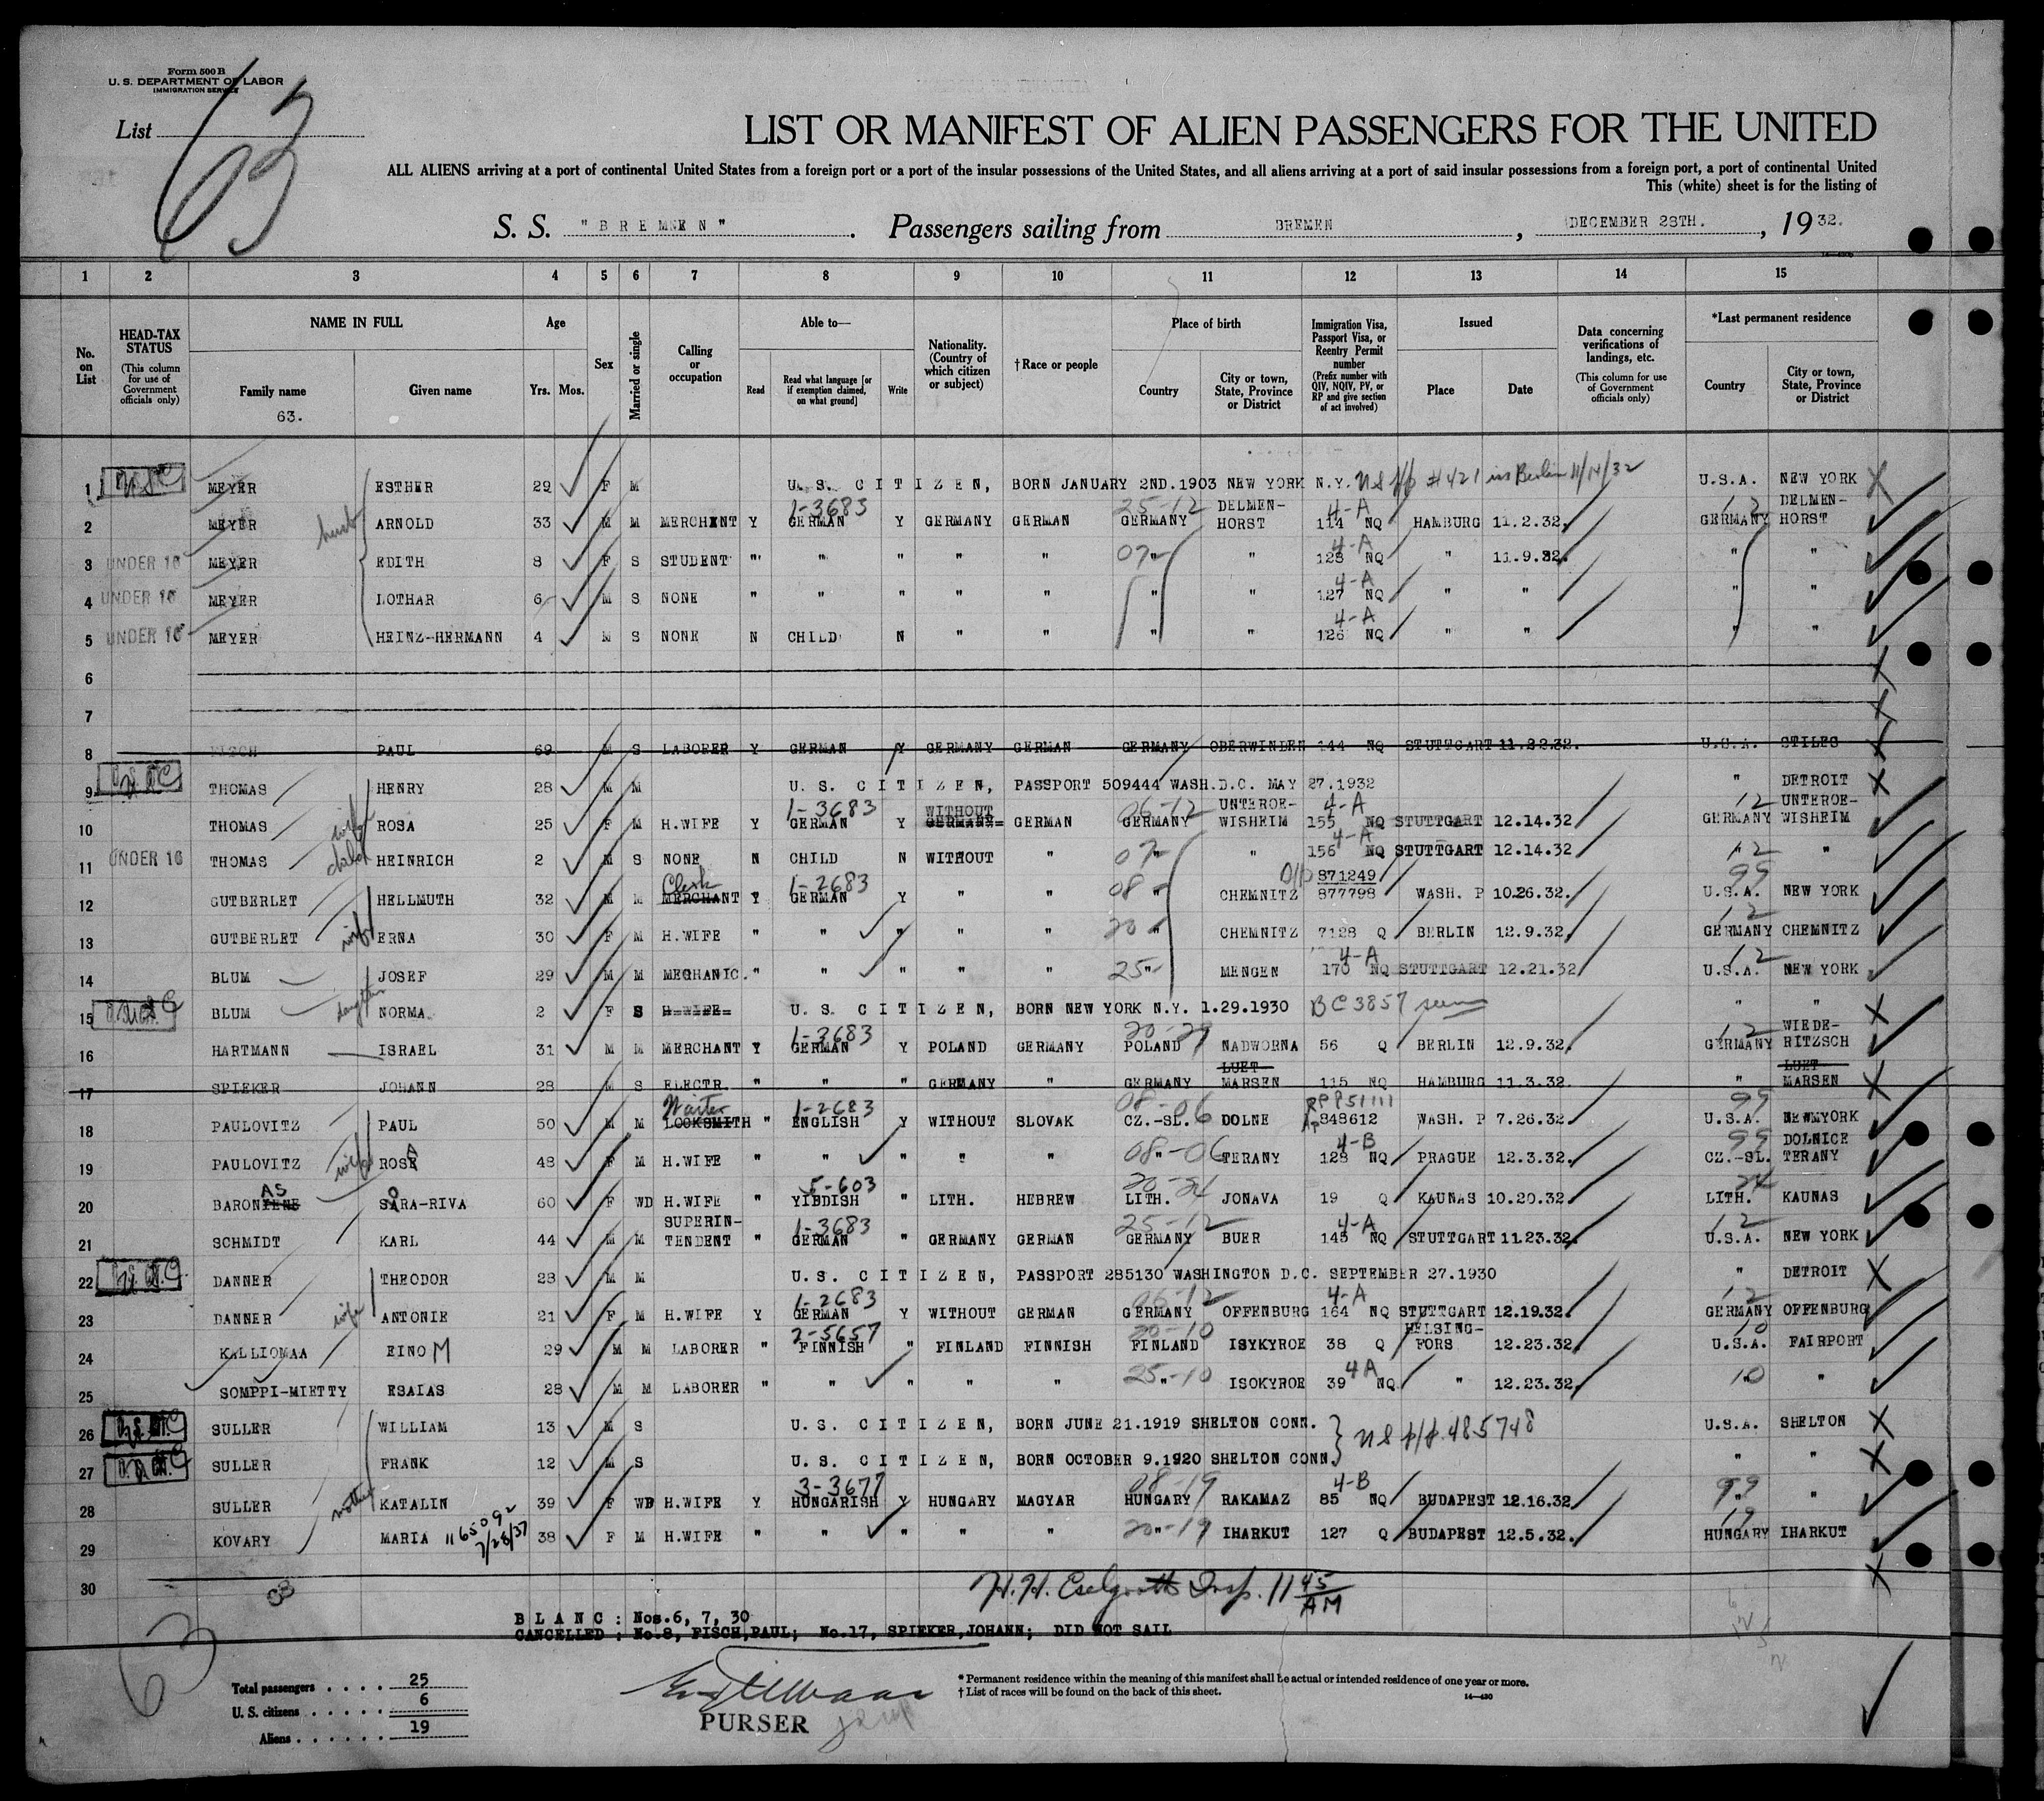 Form 500 B
U. S. DEPARTMENT OF LABOR
IMMIGRATION SERVICE
List 63
LIST OR MANIFEST OF ALIEN PASSENGERS FOR THE UNITED
ALL ALIENS arriving at a port of continental United States from a foreign port or a port of the insular possessions of the United States, and all aliens arriving at a port of said insular possessions from a foreign port, a port of continental United
This (white) sheet is for the listing of
S. S. "BREMEN". Passengers sailing from BREMEN, DECEMBER 28TH., 1932.
1 2 3 4 5 6 7 8 9 10 11 12 13 14 15
No. on List
HEAD-TAX STATUS (This column for use of Government officials only)
NAME IN FULL
Family name
63.
Given name
Age
Yrs. Mos.
Sex
Married or single
Calling or occupation
Able to—
Read
Read what language [or if exemption claimed, on what ground]
Write
Nationality. (Country of which citizen or subject)
†Race or people
Place of birth
Country
City or town, State, Province or District
Immigration Visa, Passport Visa, or Reentry Permit number
(Prefix number with QIV, NQIV, PV, or RP and give section of act involved)
Issued
Place
Date
Data concerning verifications of landings, etc.
(This column for use of Government officials only)
*Last permanent residence
Country
City or town, State, Province or District
1 USC MEYER ESTHER 29 F M U. S. CITIZEN, BORN JANUARY 2ND.1903 NEW YORK N.Y. US p/p #421 iss Berlin 11/14/32 U.S.A. NEW YORK
2 MEYER husb ARNOLD 33 M M MERCHANT Y GERMAN 1-3683 Y GERMANY GERMAN GERMANY 25-12 DELMEN-HORST 114 NQ 4-A HAMBURG 11.2.32. GERMANY 12 DELMEN-HORST
3 UNDER 16 MEYER EDITH 8 F S STUDENT " " " " " 07 " " 128 NQ 4-A " 11.9.32. " "
4 UNDER 16 MEYER LOTHAR 6 M S NONE " " " " " " " 127 NQ 4-A " " " "
5 UNDER 16 MEYER HEINZ-HERMANN 4 M S NONE N CHILD N " " " " 126 NQ 4-A " " " "
6
7
8 PAUL 69 M S LABORER Y GERMAN Y GERMANY GERMAN GERMANY OBERWINDEN 144 NQ STUTTGART 11.22.32. U.S.A. STILES
9 USC THOMAS HENRY 28 M M U. S. CITIZEN, PASSPORT 509444 WASH.D.C. MAY 27.1932 " DETROIT
10 THOMAS wife ROSA 25 F M H.WIFE Y GERMAN 1-3683 Y WITHOUT GERMANY GERMAN GERMANY 06-12 UNTEROE-WISHEIM 155 NQ 4-A STUTTGART 12.14.32 GERMANY 12 UNTEROE-WISHEIM
11 UNDER 16 THOMAS child HEINRICH 2 M S NONE N CHILD N WITHOUT " 07 " " 156 NQ 4-A STUTTGART 12.14.32 12 "
12 GUTBERLET HELLMUTH 32 M M MERCHANT Clerk Y GERMAN 1-2683 Y " " 08 CHEMNITZ 871249 877798 WASH. P 10.26.32. U.S.A. 99 NEW YORK
13 GUTBERLET wife ERNA 30 F M H.WIFE " " " " " 20 " CHEMNITZ 7128 Q BERLIN 12.9.32. GERMANY 12 CHEMNITZ
14 BLUM JOSEF 29 M M MECHANIC. " " " " " 25 " MENGEN 170 NQ 4-A STUTTGART 12.21.32 U.S.A. 12 NEW YORK
15 BLUM daughter NORMA 2 F S H-WIFE U. S. CITIZEN, BORN NEW YORK N.Y. 1.29.1930 BC 3857 seen " "
16 HARTMANN ISRAEL 31 M M MERCHANT Y GERMAN 1-3683 Y POLAND GERMANY POLAND 20-29 NADWORNA 56 Q BERLIN 12.9.32. GERMANY 12 WIEDE-RITZSCH
17 SPIEKER JOHANN 28 M S ELECTR. " " " GERMANY " GERMANY LUET-MARSEN 115 NQ HAMBURG 11.3.32. " LUET-MARSEN
18 PAULOVITZ PAUL 50 M M LOCKSMITH Waiter " ENGLISH 1-2683 Y WITHOUT SLOVAK CZ.-SL. 08-06 DOLNE 848612 WASH. P 7.26.32. U.S.A. 99 NEWMYORK
19 PAULOVITZ wife ROSA 48 F M H.WIFE " " " " " 08-06 TERANY 128 NQ 4-B PRAGUE 12.3.32. CZ.-SL. 99 DOLNICE TERANY
20 BARONIENE AS SARA-RIVA 60 F WD H.WIFE " YIDDISH 5-603 " LITH. HEBREW LITH. 20-24 JONAVA 19 Q KAUNAS 10.20.32. LITH. 24 KAUNAS
21 SCHMIDT KARL 44 M M SUPERIN-TENDENT " GERMAN 1-3683 " GERMANY GERMAN GERMANY 25-12 BUER 145 NQ 4-A STUTTGART 11.23.32. U.S.A. 12 NEW YORK
22 DANNER THEODOR 28 M M U. S. CITIZEN, PASSPORT 285130 WASHINGTON D.C. SEPTEMBER 27.1930 " DETROIT
23 DANNER wife ANTONIE 21 F M H.WIFE Y GERMAN 1-2683 Y WITHOUT GERMAN GERMANY 06-12 OFFENBURG 164 NQ 4-A STUTTGART 12.19.32. GERMANY 12 OFFENBURG
24 KALLIOMAA EINO M 29 M M LABORER " FINNISH 2-5657 " FINLAND FINNISH FINLAND 20-10 ISYKYROE 38 Q HELSING-FORS 12.23.32. U.S.A. 10 FAIRPORT
25 SOMPPI-MIETTY ESAIAS 28 M M LABORER " " " " " 25-10 ISOKYROE 39 NQ 4A " 12.23.32. 10 "
26 SULLER WILLIAM 13 M S U. S. CITIZEN, BORN JUNE 21.1919 SHELTON CONN. US p/p. 485748 U.S.A. SHELTON
27 SULLER FRANK 12 M S U. S. CITIZEN, BORN OCTOBER 9.1920 SHELTON CONN. " "
28 SULLER mother KATALIN 39 F WD H.WIFE Y HUNGARISH 3-3677 Y HUNGARY MAGYAR HUNGARY 08-19 RAKAMAZ 85 NQ 4-B BUDAPEST 12.16.32. 99 " "
29 KOVARY MARIA 1165092 7/28/37 38 F M H.WIFE " " " " " 20-19 IHARKUT 127 Q BUDAPEST 12.5.32. HUNGARY 19 IHARKUT
30
Insp. 11 45 AM
BLANC: Nos.6, 7, 30
CANCELLED: No.8, FISCH,PAUL; No.17, SPIEKER,JOHANN; DID NOT SAIL
63
Total passengers . . . . 25
U. S. citizens . . . . . 6
Aliens . . . . . . 19
PURSER
* Permanent residence within the meaning of this manifest shall be actual or intended residence of one year or more.
† List of races will be found on the back of this sheet.
14—430